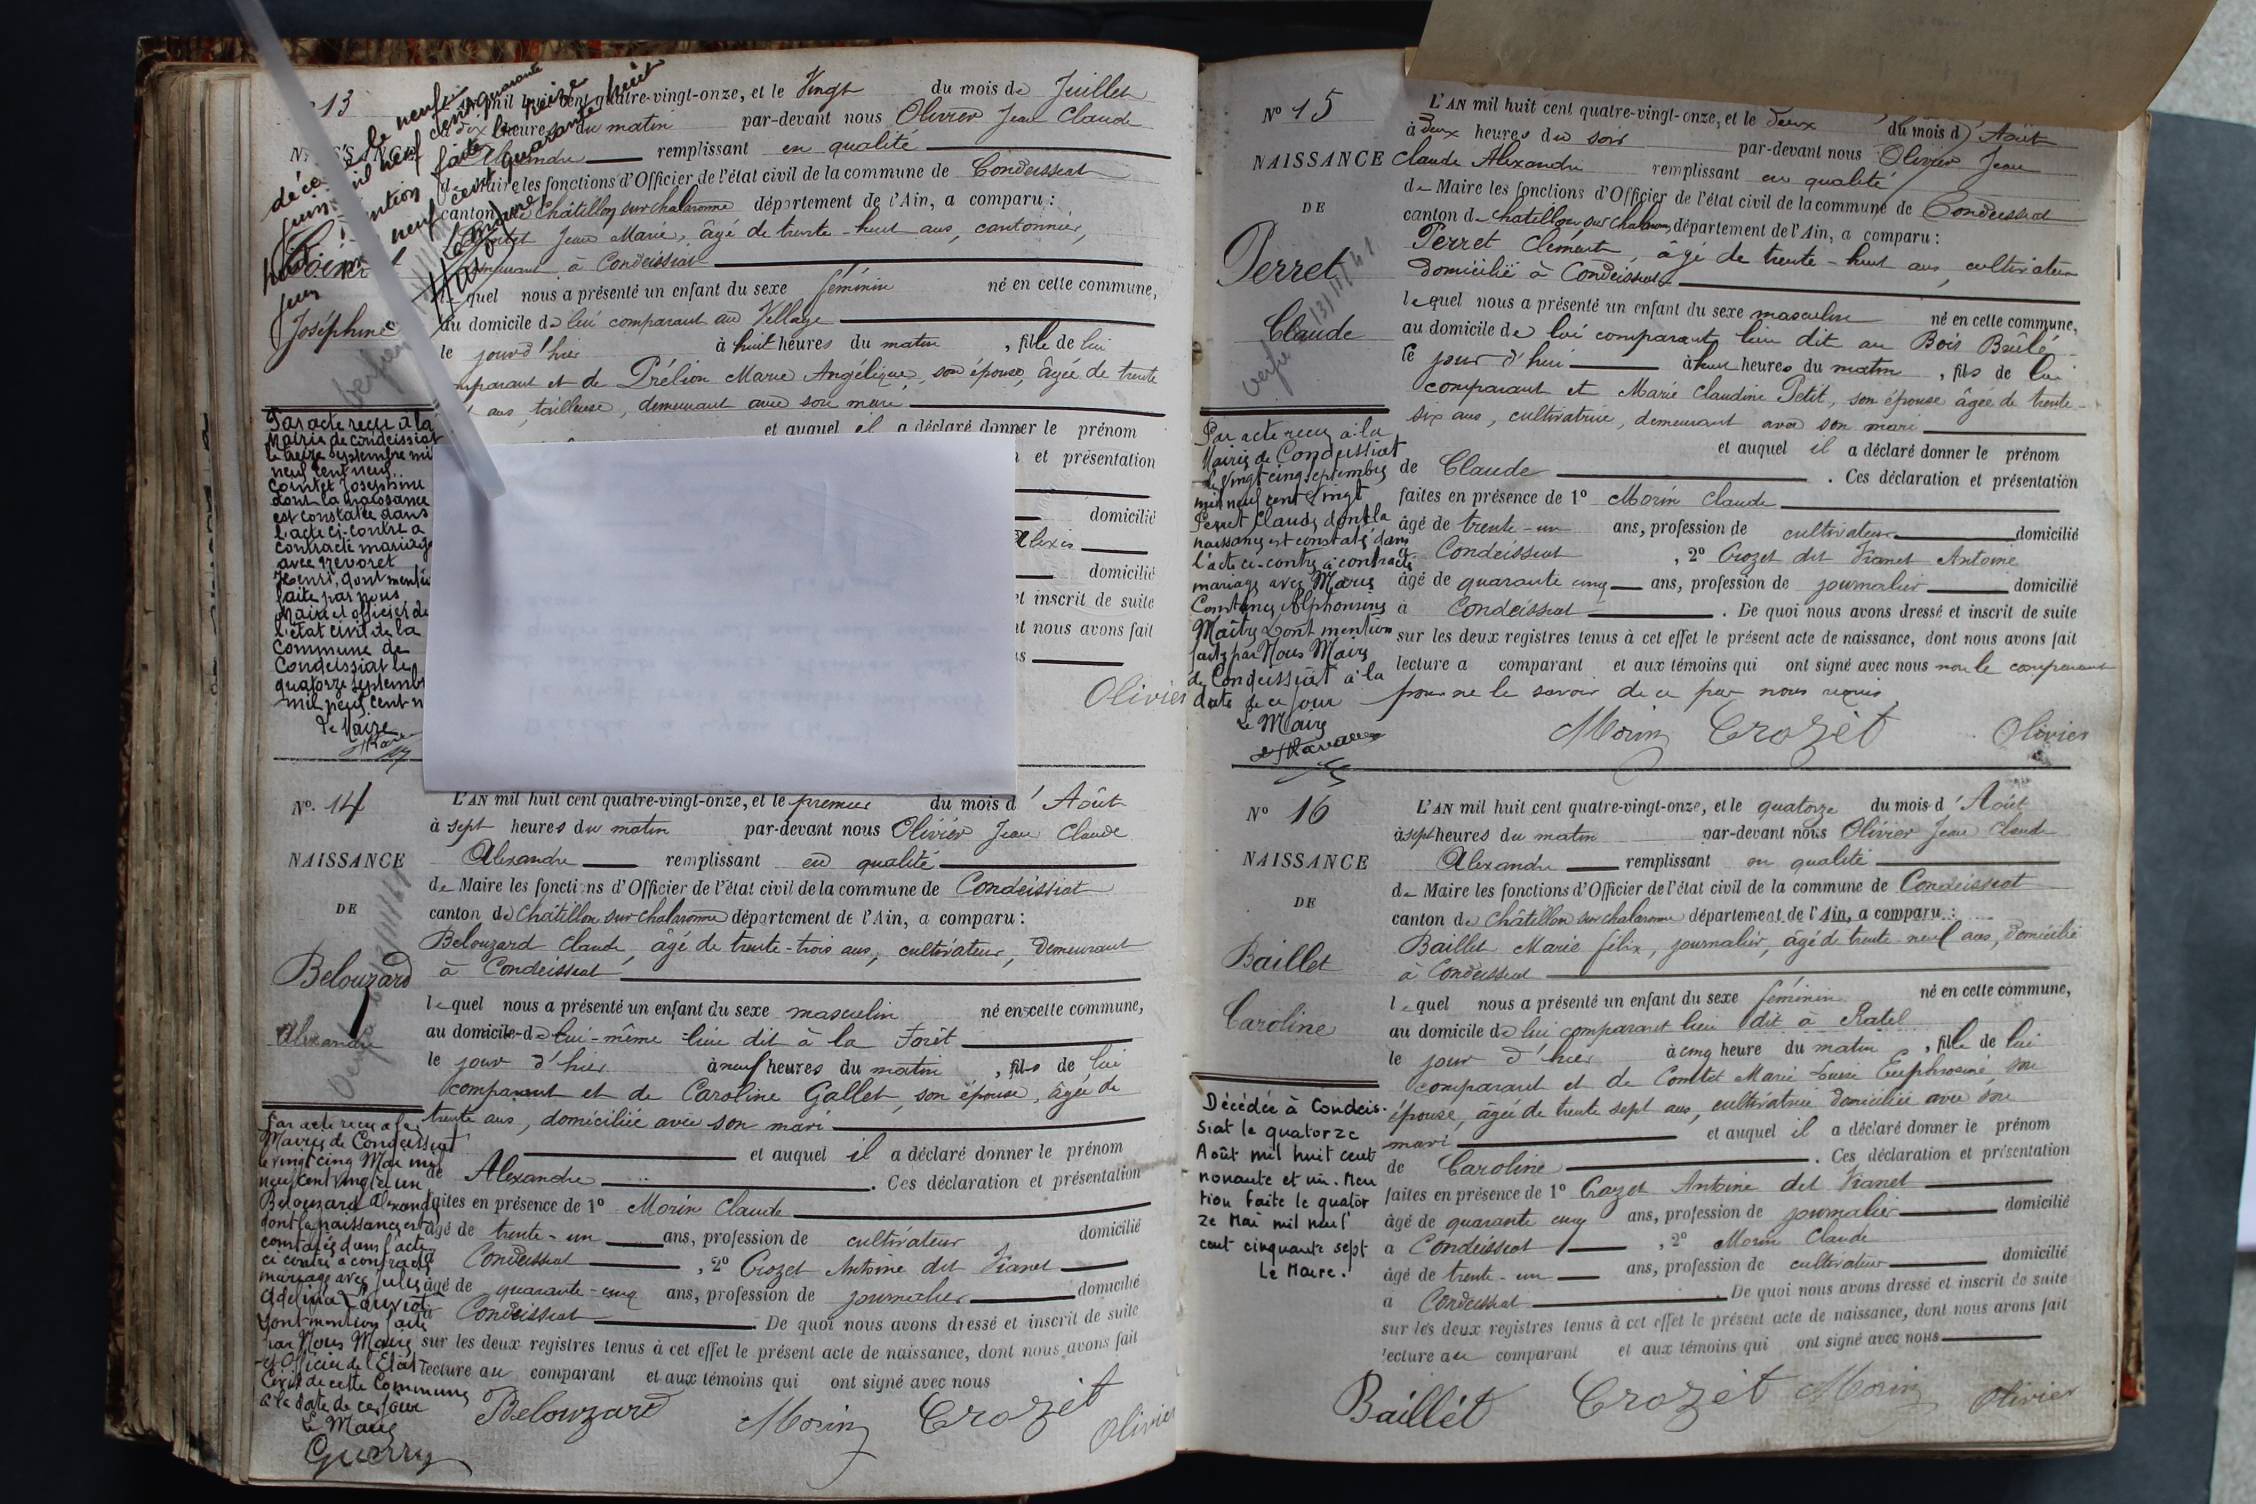 13
mil huit cent quatre-vingt-onze, et le Vingt du mois de Juillet
heures du matin par-devant nous Olivier Jean Claude
Alexandre remplissant en qualité
de Maire les fonctions d'Officier de l'état civil de la commune de Condeissiat
canton de Châtillon sur Chalaronne département de l'Ain, a comparu :
Jean Marie, âgé de trente-huit ans, cantonnier,
à Condeissiat
lequel nous a présenté un enfant du sexe féminin né en cette commune,
Joséphine
au domicile de lui comparant au Village
le jour d'hier à huit heures du matin, fille de lui
comparant et de Prélion Marie Angélique, son épouse, âgée de trente
ans, tailleuse, demeurant avec son mari
et auquel il a déclaré donner le prénom
et présentation
domicilié
Alexis
domicilié
et inscrit de suite
nous avons fait
Olivier
Par acte reçu à la
Mairie de Condeissiat
le treize septembre mil
neuf cent neuf
Comtet Joséphine
dont la naissance
est constatée dans
l'acte ci-contre a
contracté mariage
avec Revoret
Henri, dont mention
faite par nous
Maire et officier de
l'état civil de la
Commune de
Condeissiat le
quatorze septembre
mil neuf cent n
Le Maire
N° 14
NAISSANCE
DE
Belouzard
Alexandre
L'AN mil huit cent quatre-vingt-onze, et le premier du mois d'Août
à sept heures du matin par-devant nous Olivier Jean Claude
Alexandre remplissant en qualité
de Maire les fonctions d'Officier de l'état civil de la commune de Condeissiat
canton de Châtillon sur Chalaronne département de l'Ain, a comparu :
Belouzard Claude, âgé de trente-trois ans, cultivateur, demeurant
à Condeissiat
lequel nous a présenté un enfant du sexe masculin né en cette commune,
au domicile de lui-même lieu dit à la Forêt
le jour d'hier à neuf heures du matin, fils de lui
comparant et de Caroline Gallet, son épouse, âgée de
trente ans, domiciliée avec son mari
et auquel il a déclaré donner le prénom
de Alexandre. Ces déclaration et présentation
faites en présence de 1° Morin Claude
âgé de trente-un ans, profession de cultivateur domicilié
à Condeissiat, 2° Crozet Antoine dit Vianet
âgé de quarante-cinq ans, profession de journalier domicilié
à Condeissiat. De quoi nous avons dressé et inscrit de suite
sur les deux registres tenus à cet effet le présent acte de naissance, dont nous avons fait
lecture au comparant et aux témoins qui ont signé avec nous
Belouzard Morin Crozet Olivier
Par acte reçu à la
Mairie de Condeissiat
le vingt cinq Mai mil
neuf cent vingt et un
Belouzard Alexandre
dont la naissance est
constatée dans l'acte
ci contre a contracté
mariage avec Julie
Adelina Lauriot
Dont mention faite
par Nous Maire
et Officier de l'Etat
Civil de cette Commune
à la date de ce jour
Le Maire
Guerry
N° 15
NAISSANCE
DE
Perret
Claude
L'AN mil huit cent quatre-vingt-onze, et le deux du mois d'Août
à deux heures du soir par-devant nous Olivier Jean
Claude Alexandre remplissant en qualité
de Maire les fonctions d'Officier de l'état civil de la commune de Condeissiat
canton de Châtillon sur Chalaronne, département de l'Ain, a comparu :
Perret Clément, âgé de trente-huit ans, cultivateur
domicilié à Condeissiat
lequel nous a présenté un enfant du sexe masculin né en cette commune,
au domicile de lui comparant lieu dit au Bois Brûlé
le jour d'hui à huit heures du matin, fils de lui
comparant et Marie Claudine Petit, son épouse âgée de trente-
six ans, cultivatrice, demeurant avec son mari
et auquel il a déclaré donner le prénom
de Claude. Ces déclaration et présentation
faites en présence de 1° Morin Claude
âgé de trente-un ans, profession de cultivateur domicilié
à Condeissiat, 2° Crozet dit Vianet Antoine
âgé de quarante cinq ans, profession de journalier domicilié
à Condeissiat. De quoi nous avons dressé et inscrit de suite
sur les deux registres tenus à cet effet le présent acte de naissance, dont nous avons fait
lecture a comparant et aux témoins qui ont signé avec nous non le comparant
pour ne le savoir de ce par nous requis
Morin Crozet Olivier
Par acte reçu à la
Mairie de Condeissiat
le vingt cinq septembre
mil neuf cent vingt
Perret Claude dont la
naissance est constatée dans
l'acte ci-contre a contracté
mariage avec Marie
Constance Alphonsine
Maître Dont mention
faite par Nous Maire
de Condeissiat à la
date de ce jour
Le Maire
N° 16
NAISSANCE
DE
Baillet
Caroline
L'AN mil huit cent quatre-vingt-onze, et le quatorze du mois d'Août
à sept heures du matin par-devant nous Olivier Jean Claude
Alexandre remplissant en qualité
de Maire les fonctions d'Officier de l'état civil de la commune de Condeissiat
canton de Châtillon sur Chalaronne département de l'Ain, a comparu :
Baillet Marie Félix, journalier, âgé de trente-neuf ans, domicilié
à Condeissiat
lequel nous a présenté un enfant du sexe féminin né en cette commune,
au domicile de lui comparant lieu dit à Ratel
le jour d'hier à cinq heure du matin, fille de lui
comparant et de Comtet Marie Euphrosine, son
épouse, âgée de trente sept ans, cultivatrice domiciliée avec son
mari et auquel il a déclaré donner le prénom
de Caroline. Ces déclaration et présentation
faites en présence de 1° Crozet Antoine dit Vianet
âgé de quarante cinq ans, profession de journalier domicilié
à Condeissiat, 2° Morin Claude
âgé de trente-un ans, profession de cultivateur domicilié
à Condeissiat. De quoi nous avons dressé et inscrit de suite
sur les deux registres tenus à cet effet le présent acte de naissance, dont nous avons fait
lecture au comparant et aux témoins qui ont signé avec nous
Baillet Crozet Morin Olivier
Décédée à Condeis-
siat le quatorze
Août mil huit cent
nonante et un. Men
tion faite le quator
ze Mai mil neuf
cent cinquante sept
Le Maire.